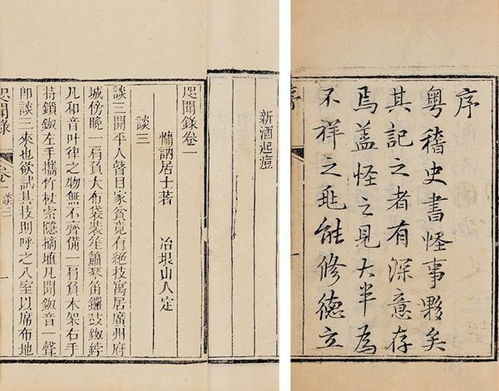 序
粤稽史書怪事夥矣
其記之者有深意存
焉盖怪之見大半為
不祥之兆能修德立
新酒起痘
咫聞錄卷一
慵訥居士著 冶垠山人定
談三
談三開平人瞽目家貧竟有絕技寓居廣州府
城傍晚一肩負大布袋裝笙簫琴笛鑼鼓鈸
凡和音叶律之物無不齊備一肩負木架右手
持銷鈸左手攜竹杖索隱摘埴凡聞鈸音一聲
即談三來也欲試其技則呼之入室以席布地
咫聞錄 卷一 談三